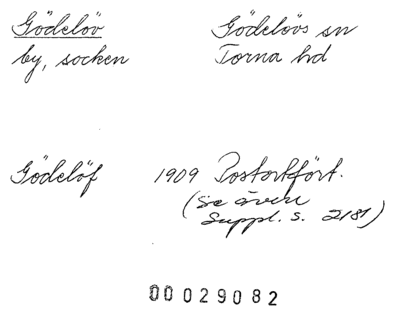 Gödelöv Gödelövs sn
by, socken Torna hd
Gödelöf 1909 Postortfört.
(se även
Suppl. s. 2181)
00029082